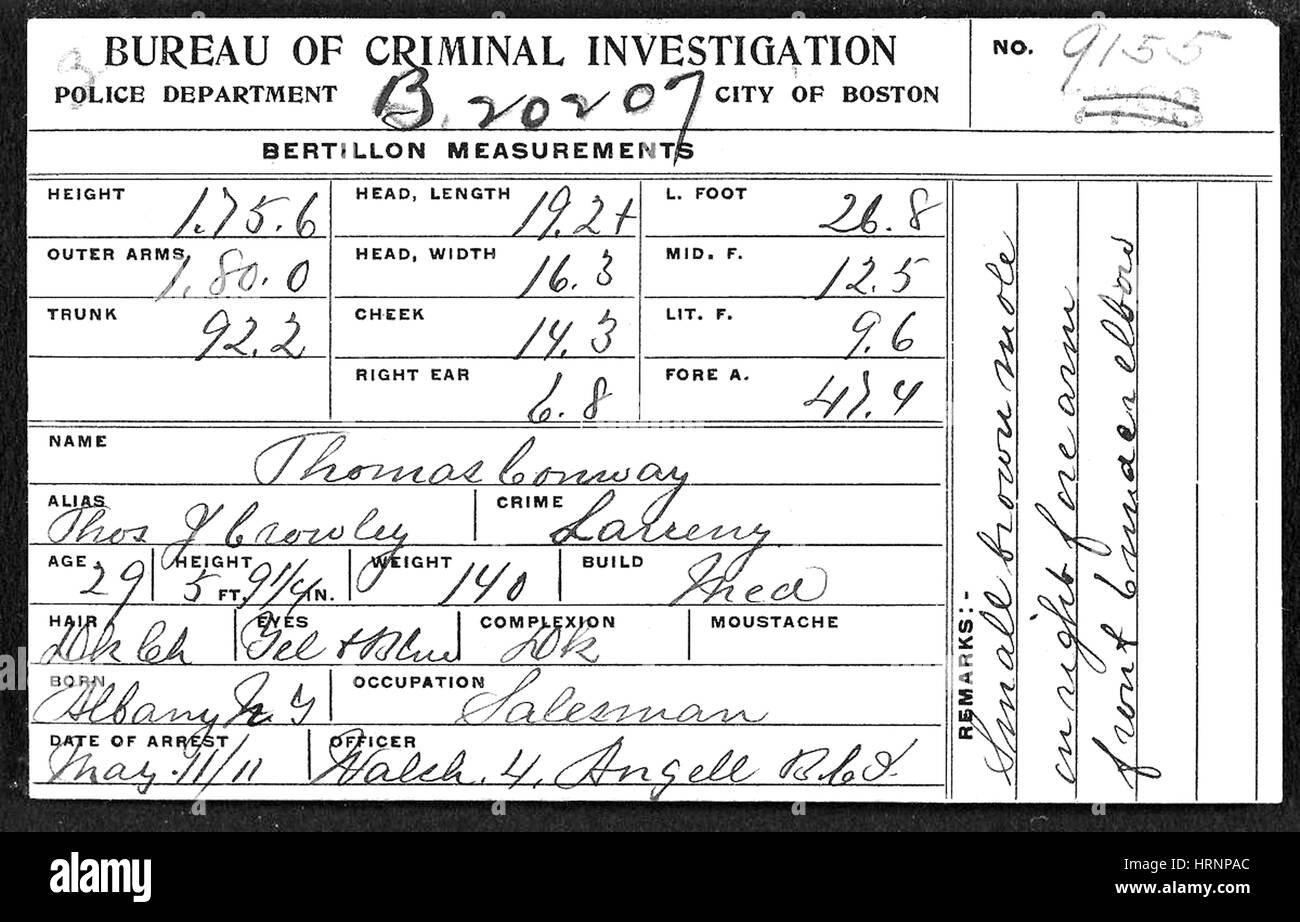 BUREAU OF CRIMINAL INVESTIGATION
POLICE DEPARTMENT B. 20207 CITY OF BOSTON
NO. 9155
BERTILLON MEASUREMENTS
HEIGHT 1.75.6 HEAD, LENGTH 19.2+ L. FOOT 26.8
OUTER ARMS, 1.80.0 HEAD, WIDTH 16.3 MID. F. 12.5
TRUNK 92.2 CHEEK 14.3 LIT. F. 9.6
RIGHT EAR 6.8 FORE A. 47.4
NAME Thomas Conway
ALIAS Thos J Crowley CRIME Larceny
AGE 29 HEIGHT 5 FT. 9 1/4 IN. WEIGHT 140 BUILD Med
HAIR Dk Ch EYES Yel + Blue COMPLEXION Dk MOUSTACHE
BORN Albany N. Y OCCUPATION Salesman
DATE OF ARREST May 11/11 OFFICER Walch. 4. Angell B.C.I.
REMARKS:-
Small brown mole
on right fore arm
front 6 under elbow
alamy
Image ID: HRNPAC
www.alamy.com